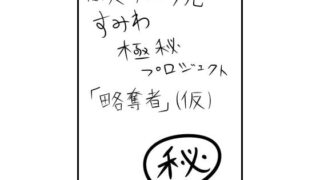 すみわ
極秘
プロジェクト
「略奪者」(仮)
秘